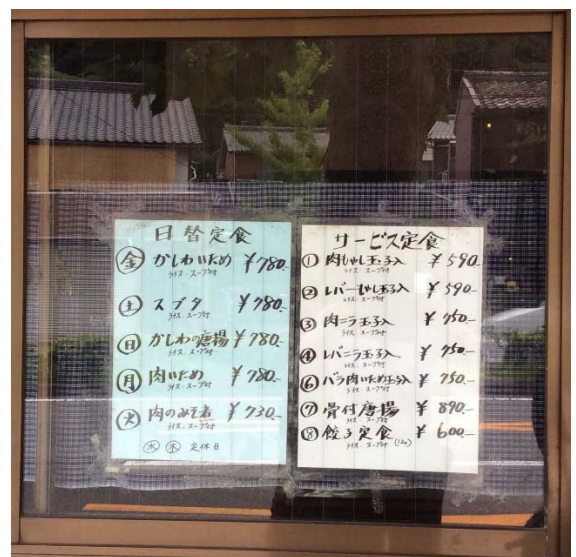 日替定食
金 かしわいため ¥780.-
ライス・スープ付
土 スブタ ¥780.-
ライス・スープ付
日 かしわの唐揚 ¥780.-
ライス・スープ付
月 肉いため ¥780.-
ライス・スープ付
火 肉のみそ煮 ¥730.-
ライス・スープ付
水 木 定休日
サービス定食
① 肉もやし玉子入 ¥590.-
ライス・スープ付
② レバーもやし玉子入 ¥590.-
ライス・スープ付
③ 肉ニラ玉子入 ¥750.-
ライス・スープ付
④ レバニラ玉子入 ¥750.-
ライス・スープ付
⑥ バラ肉いため玉子入 ¥750.-
ライス・スープ付
⑦ 骨付唐揚 ¥890.-
ライス・スープ付
⑧ 餃子定食 ¥600.-
ライス・スープ付 (12ケ)